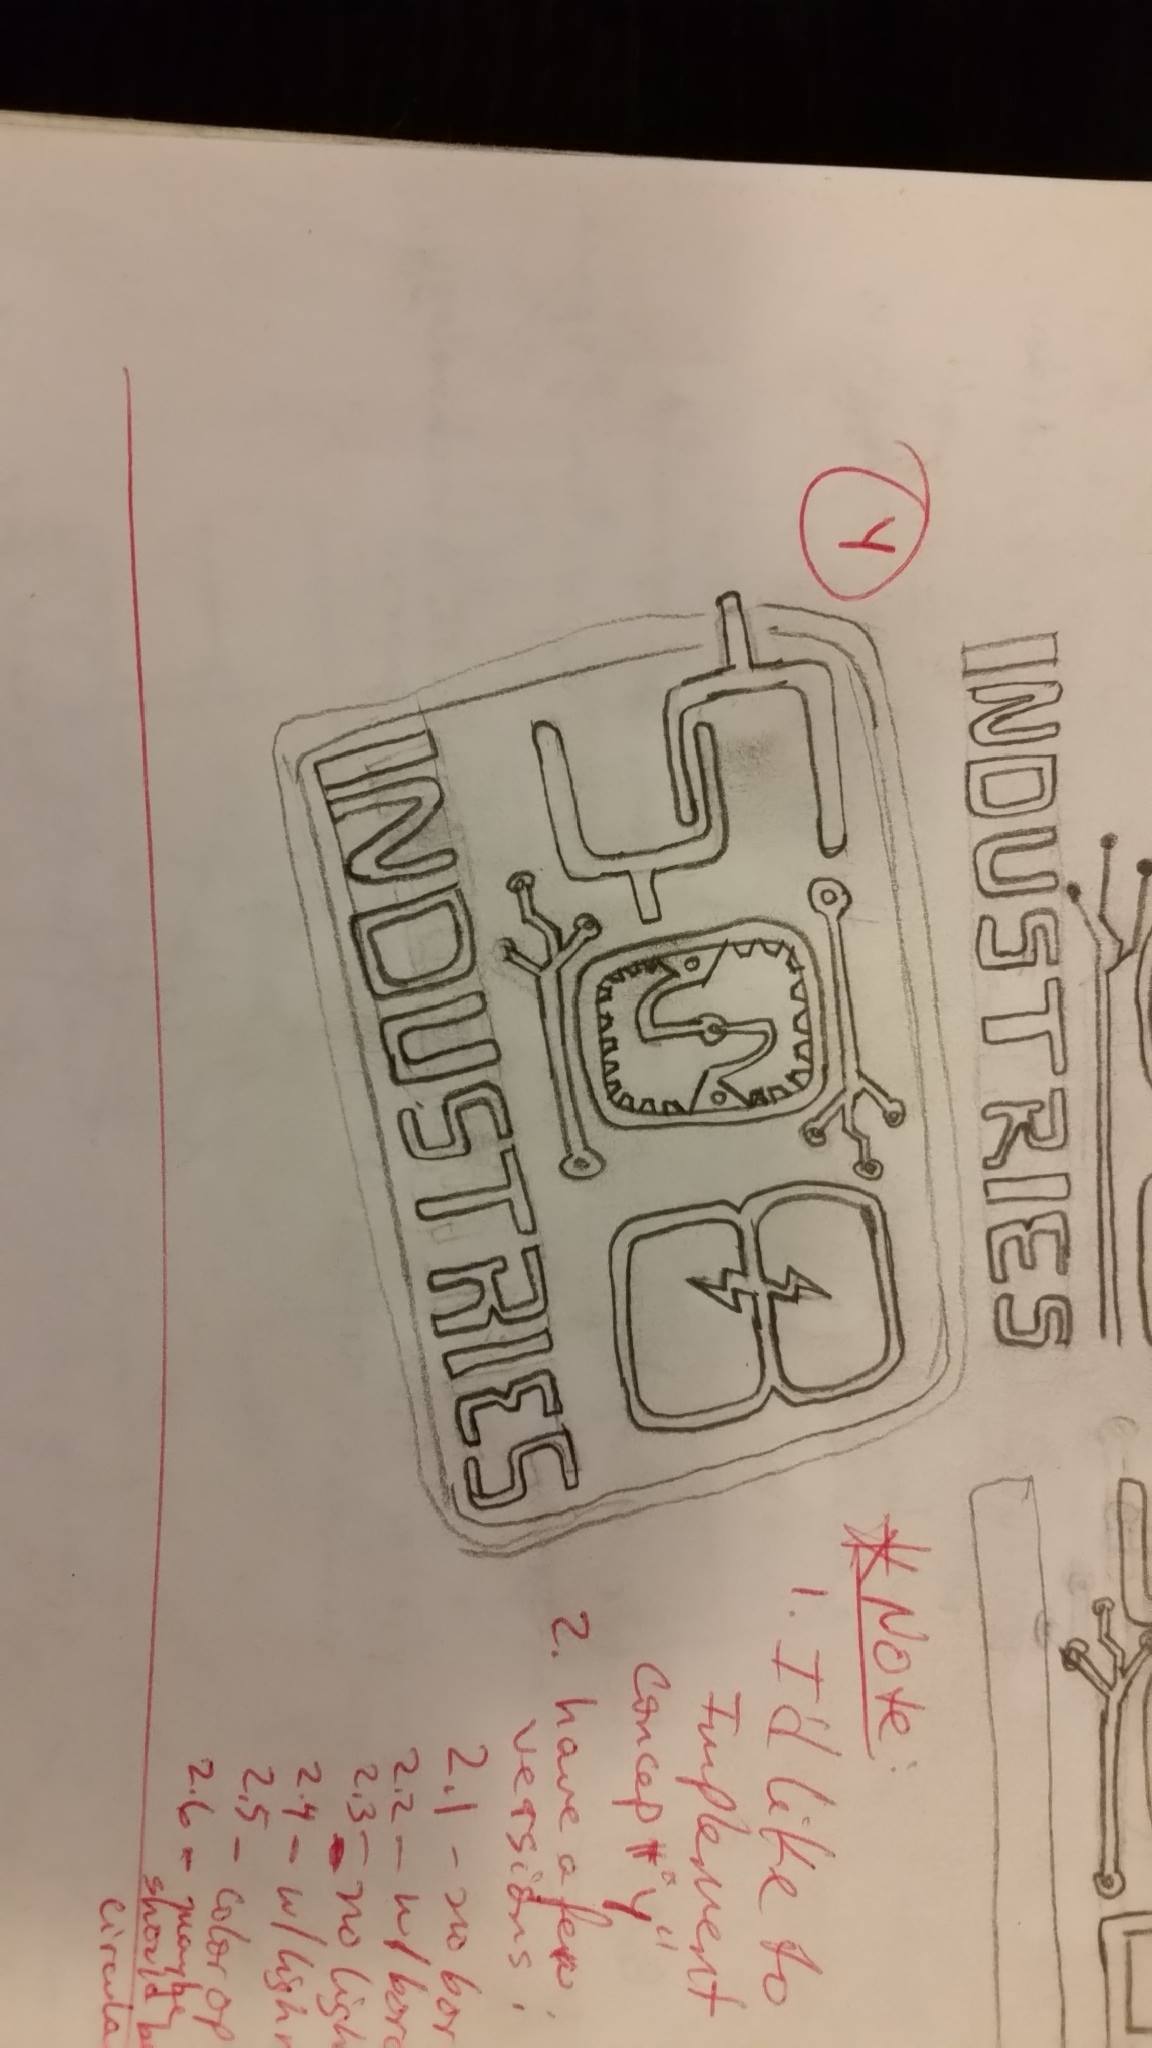 INDUSTRIES
Y
INDUSTRIES
* Note:
1. I'd like to
Implement
Concept "Y"
2. have a few
versions:
2.1 - no bor
2.2 - w/ bord
2.3 - no ligh
2.4 - w/ligh
2.5 - color op
2.6 - maybe
should b
circula